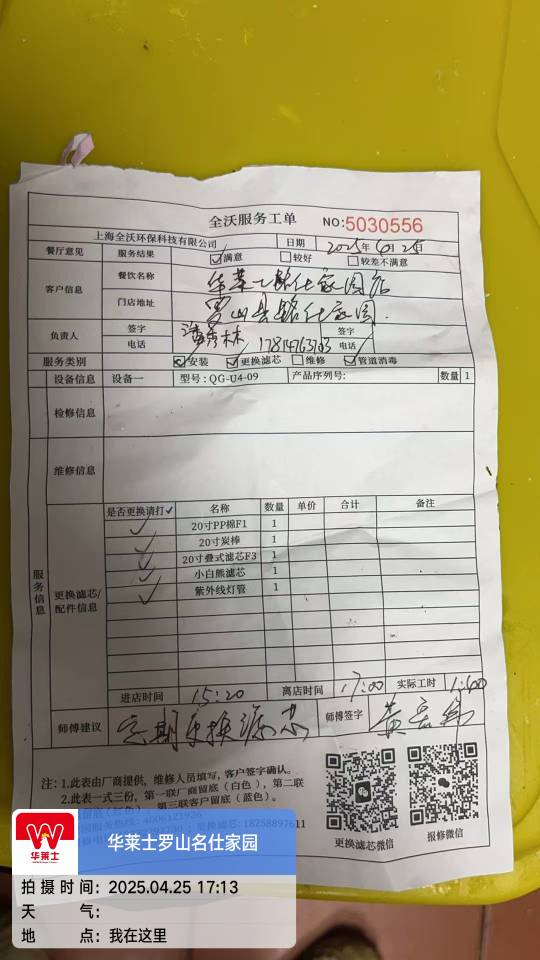 全沃服务工单 NO:5030556
上海全沃环保科技有限公司 日期 2025年4月25日
餐厅意见 服务结果 ☑满意 □较好 □较差不满意
客户信息 餐饮名称 华莱士铭仕家园店
门店地址 罗山县铭仕家园
负责人 签字 签字
电话 17814763193 电话
服务类别 ☑安装 ☑更换滤芯 □维修 ☑管道消毒
设备信息 设备一 型号:QG-U4-09 产品序列号: 数量 1
检修信息
维修信息
服务信息
更换滤芯/配件信息
是否更换请打✓ 名称 数量 单价 合计 备注
✓ 20寸PP棉F1 1
✓ 20寸炭棒 1
✓ 20寸叠式滤芯F3 1
✓ 小白熊滤芯 1
✓ 紫外线灯管 1
进店时间 15:20 离店时间 17:00 实际工时
师傅建议 定期更换滤芯 师傅签字
注:1.此表由厂商提供,维修人员填写,客户签字确认。
2.此表一式三份,第一联厂商留底(白色),第二联
第三联客户留底(蓝色)。
4006123926 更换滤芯:18258897611
更换滤芯微信 报修微信
华莱士
华莱士罗山名仕家园
拍摄时间:2025.04.25 17:13
天 气:
地 点:我在这里